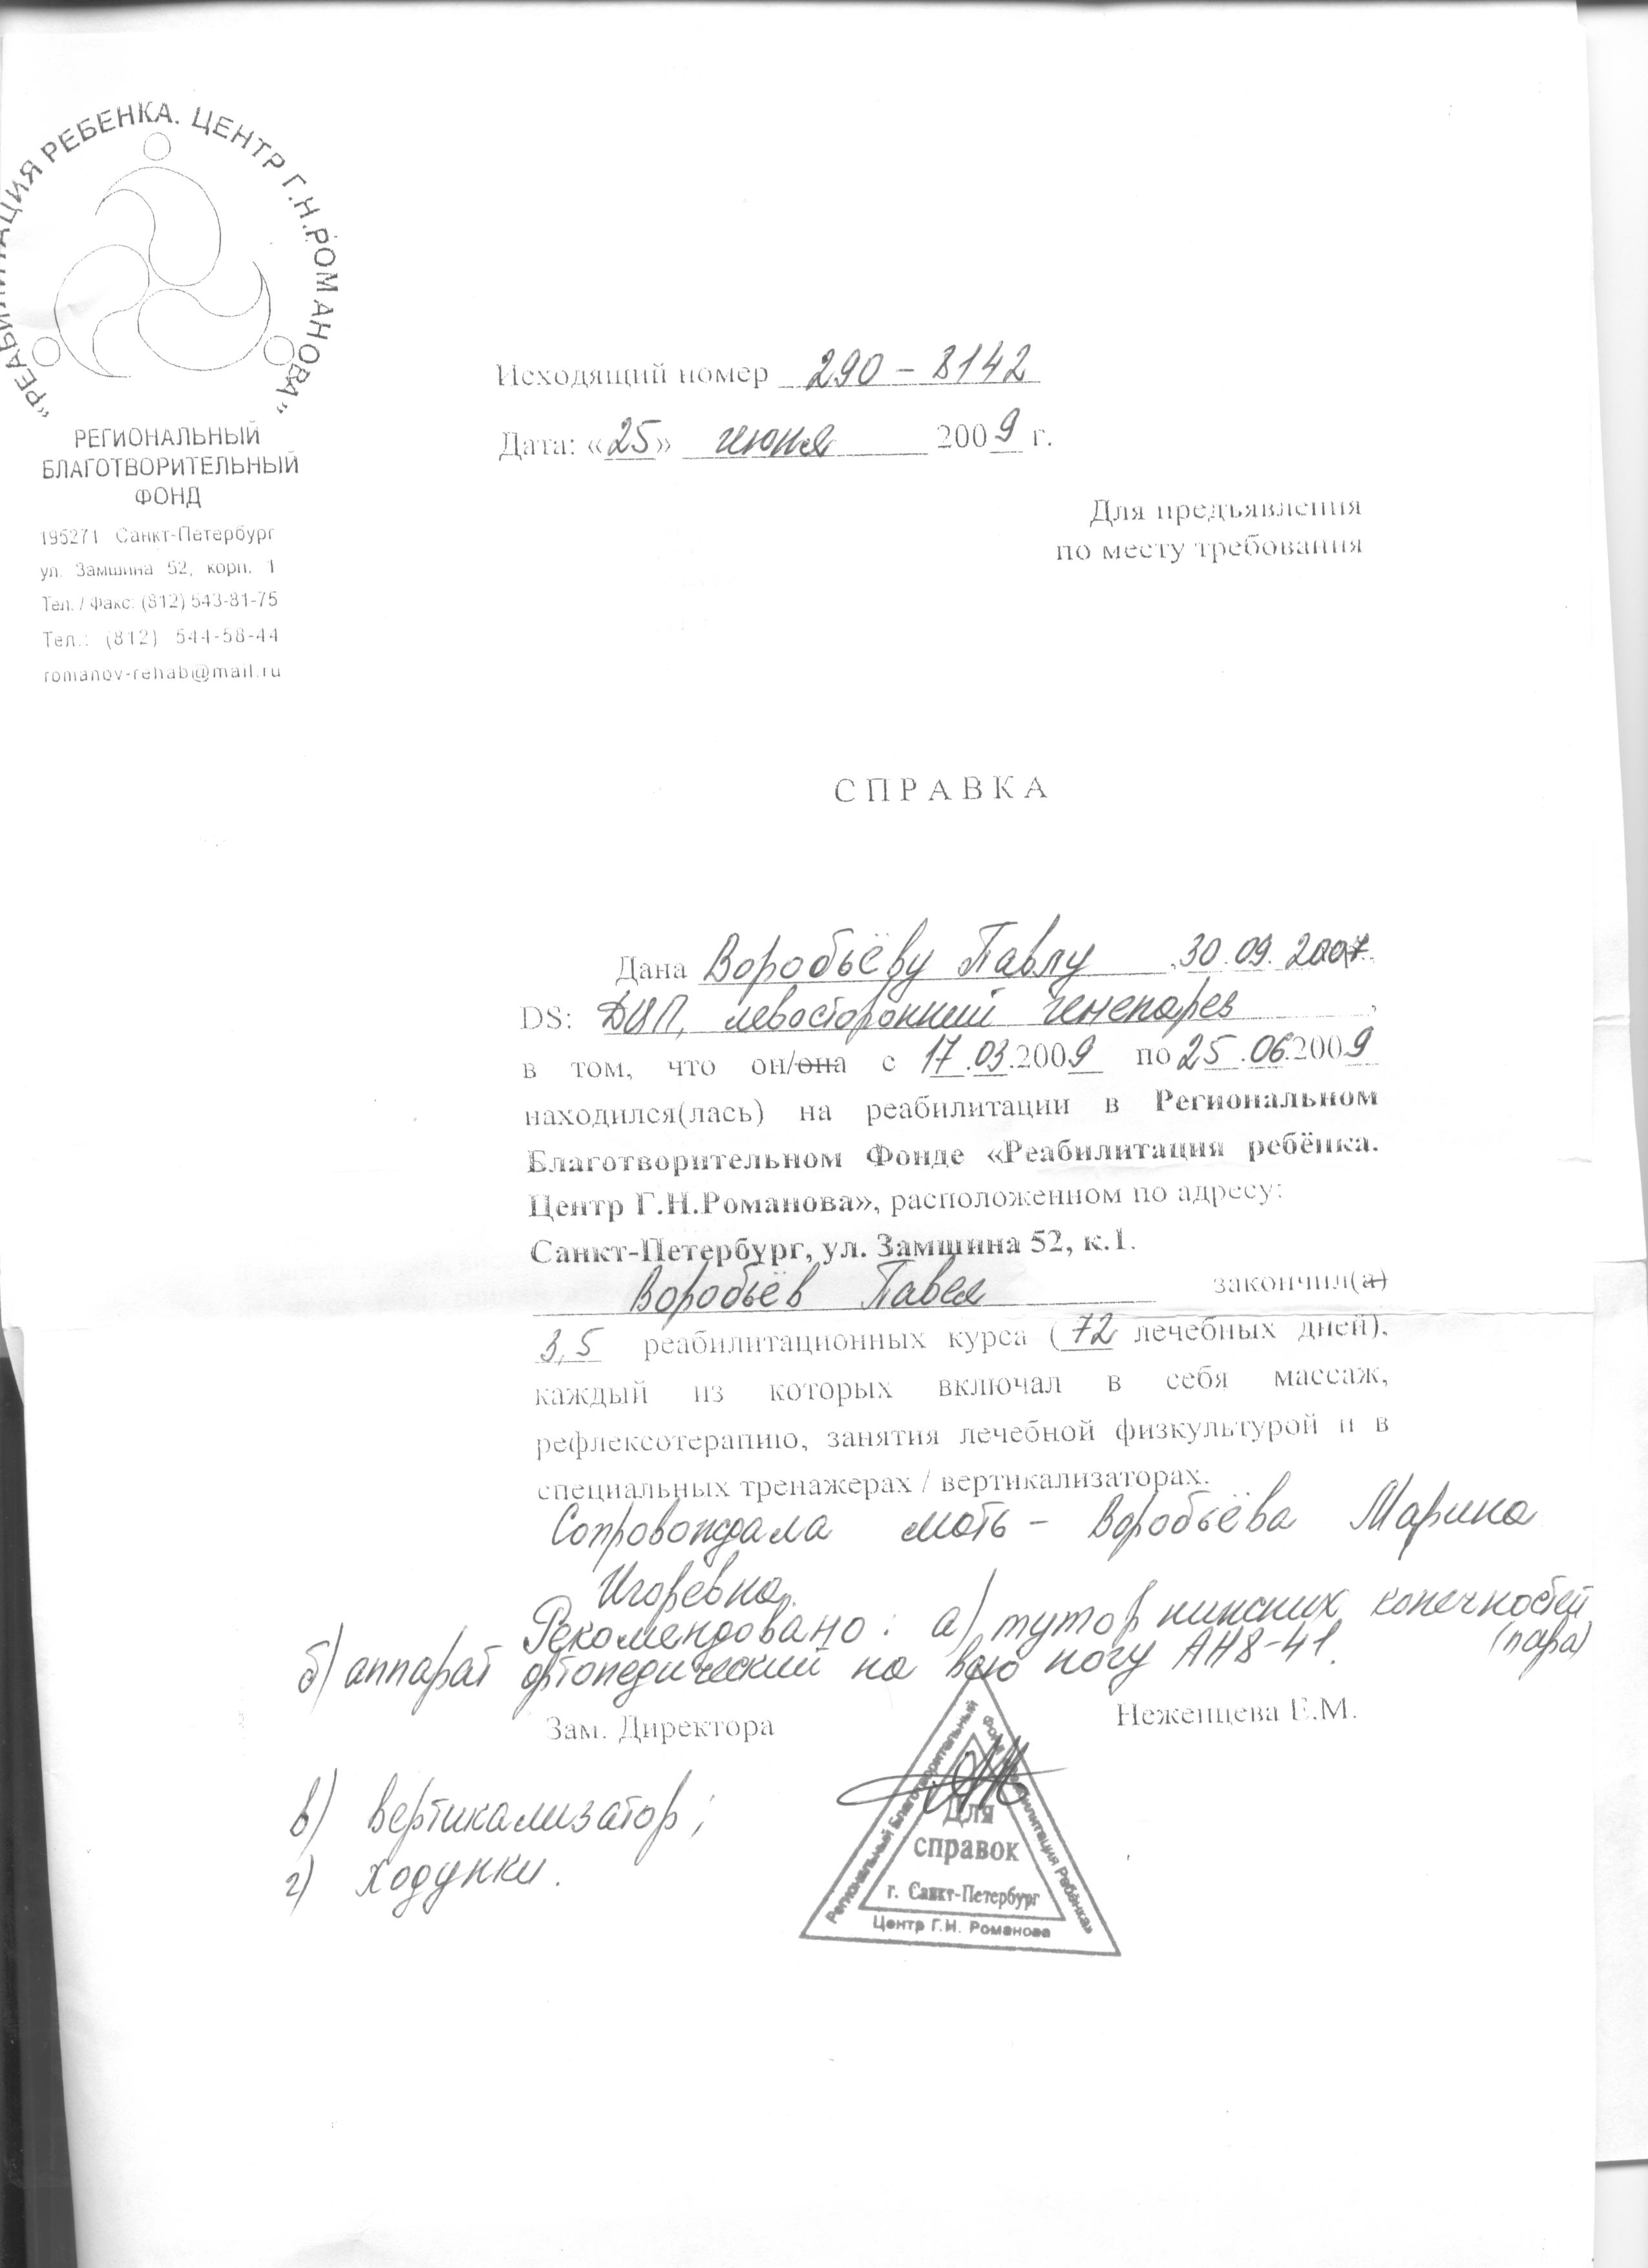 "РЕАБИЛИТАЦИЯ РЕБЕНКА. ЦЕНТР Г.Н.РОМАНОВА"
РЕГИОНАЛЬНЫЙ
БЛАГОТВОРИТЕЛЬНЫЙ
ФОНД
195271 Санкт-Петербург
ул. Замшина 52, корп. 1
Тел. / Факс: (812) 543-81-75
Тел.: (812) 544-58-44
romanov-rehab@mail.ru
Исходящий номер 290 – 8142
Дата: «25» июня 2009 г.
Для предъявления
по месту требования
СПРАВКА
Дана Воробьёву Павлу, 30.09.2007.
DS: ДЦП, левосторонний гемепарез,
в том, что он/она с 17.03.2009 по 25.06.2009
находился(лась) на реабилитации в Региональном
Благотворительном Фонде «Реабилитация ребёнка.
Центр Г.Н.Романова», расположенном по адресу:
Санкт-Петербург, ул. Замшина 52, к.1.
Воробьёв Павел закончил(а)
3,5 реабилитационных курса (72 лечебных дней),
каждый из которых включал в себя массаж,
рефлексотерапию, занятия лечебной физкультурой и в
специальных тренажерах / вертикализаторах.
Сопровождала мать – Воробьёва Марина
Игоревна.
Рекомендовано: а) тутор нижних конечностей
(пара)
б) аппарат ортопедический на всю ногу АН8-41.
Зам. Директора Неженцева Е.М.
в) вертикализатор;
г) ходунки.
Региональный Благотворительный Фонд «Реабилитация Ребёнка»
Для
справок
г. Санкт-Петербург
Центр Г.Н. Романова